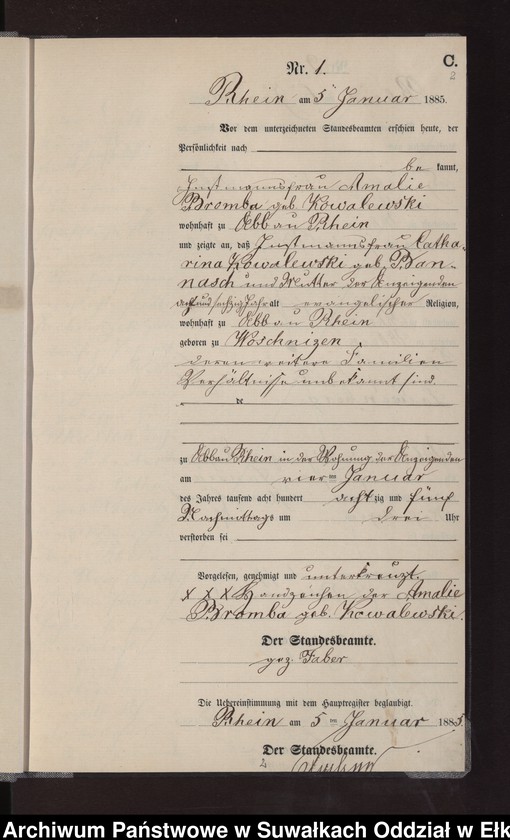 C.
2
Nr. 1.
Rhein am 5 Januar 1885.
Vor dem unterzeichneten Standesbeamten erschien heute, der
Persönlichkeit nach
be kannt,
Instmannsfrau Amalie
Bromba geb. Kowalewski
wohnhaft zu Abbau Rhein
und zeigte an, daß Instmannsfrau Catha-
rina Kowalewski geb. Ban-
nasch und Mutter der Anzeigenden
acht und sechzig Jahr alt evangelischer Religion,
wohnhaft zu Abbau Rhein
geboren zu Woschnizen
deren weitere Familien
Verhältnisse unbekannt sind.
de
zu Abbau Rhein in der Wohnung der Anzeigenden
am vier ten Januar
des Jahres tausend acht hundert acht zig und fünf
Nachmittags um drei Uhr
verstorben sei
Vorgelesen, genehmigt und unterkreuzt.
x x x Handzeichen der Amalie
Bromba geb. Kowalewski.
Der Standesbeamte.
gez. Faber
Die Uebereinstimmung mit dem Hauptregister beglaubigt.
Rhein am 5 ten Januar 1885
Der Standesbeamte.
Archiwum Państwowe w Suwałkach Oddział w Ełk